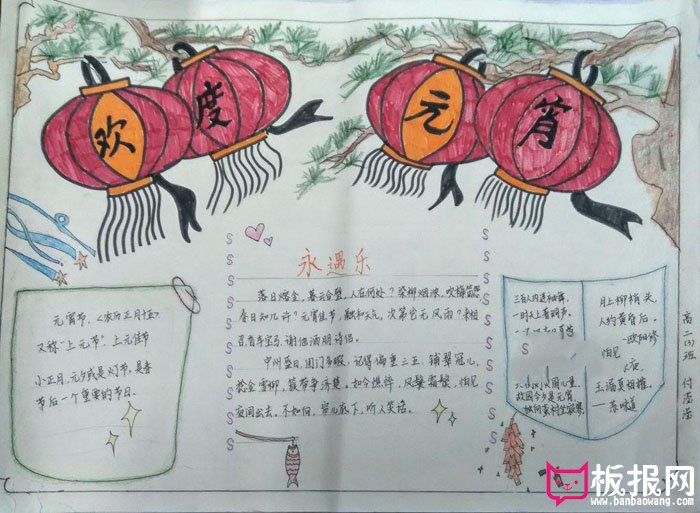 欢 度 元 宵
永遇乐
落日熔金，暮云合璧，人在何处？染柳烟浓，吹梅笛怨，
春日知几许？元宵佳节，融和天气，次第岂无风雨？来相
召，香车宝马，谢他酒朋诗侣。
中州盛日，闺门多暇，记得偏重三五。铺翠冠儿，
捻金雪柳，簇带争济楚，如今憔悴，风鬟霜鬓，怕见
夜间出去，不如向，帘儿底下，听人笑语。
元宵节，《农历正月十五》
又称"上元节"，上元佳节
小正月，元夕或是灯节，是春
节后一个重要的节日。
三百人内连袖舞，
一时天上着词声。
儿童，
故园今夕是元宵
月上柳梢头，
人约黄昏后。
—欧阳修
王
—苏味道
高二(3)班
付滢滢
S
板报网
www.banbaowang.com